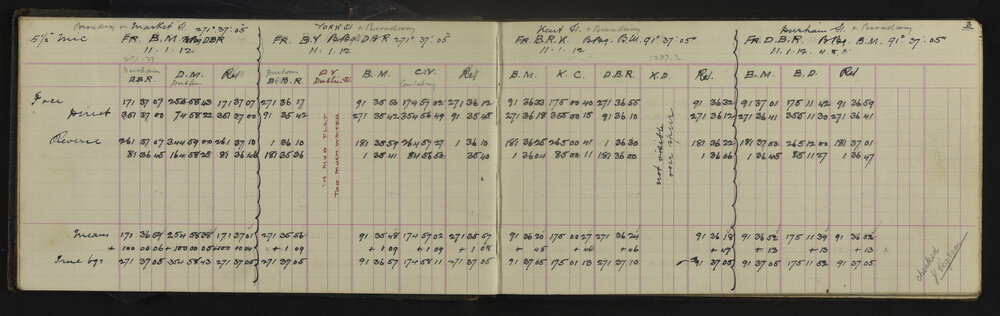 Broadway or Market St. 271° 37' 05" YORK St & Broadway Kent St & Broadway Durham St. & Broadway 3
5½" Mic FR. B.M. Brg D.B.R FR. B.Y Brg D.B.R 271° 37' 05" FR. B.R.K. Brg. B.M. 91° 37' 05" FR. D.B.R. Brg. B.M. 91° 37' 05"
11.1.12. 11.1.12 11.1.12 11.1.12.
Durham D.B.R. D.M. Ref Durham D.B.R. D.Y B.M. C.Y. Ref B.M. K.C. D.B.R. K.D. Ref. B.M. B.D. Ref
Face 171 37 07 254 58 43 171 37 07 271 36 17 91 35 53 174 57 02 271 36 12 91 36 33 175 00 40 271 36 55 91 36 32 91 37 01 175 11 42 91 36 59
Direct 351 37 00 74 58 22 351 37 00 91 35 42 271 35 42 354 56 49 91 35 45 271 36 18 355 00 15 91 36 10 271 36 12 271 36 41 355 11 30 271 36 41
IN MUD FLAT
TOO MUCH WATER
not visible
over spur
Reverse 261 37 07 344 59 00 261 37 10 1 36 10 181 35 59 264 57 27 1 36 10 181 36 25 265 00 41 1 36 30 181 36 22 181 37 00 265 12 00 181 37 01
81 36 45 164 58 25 81 36 46 181 35 36 1 35 41 84 56 53 35 40 1 36 04 85 00 11 181 36 00 1 36 06 1 36 45 85 11 27 1 36 47
Means 171 36 59 254 58 38 171 37 01 271 35 56 91 35 48 174 57 02 271 35 57 91 36 20 175 00 27 271 36 24 91 36 18 91 36 52 175 11 39 91 36 52
+ 100 00 06 + 100 00 05 + 100 00 04 + 1 09 + 1 09 + 1 09 + 1 08 + 45 + 46 + 46 + 47 + 13 + 13 + 13
True bgs 271 37 05 354 58 43 271 37 05 271 37 05 91 36 57 174 58 11 271 37 05 91 37 05 175 01 13 271 37 10 91 37 05 91 37 05 175 11 52 91 37 05
checked